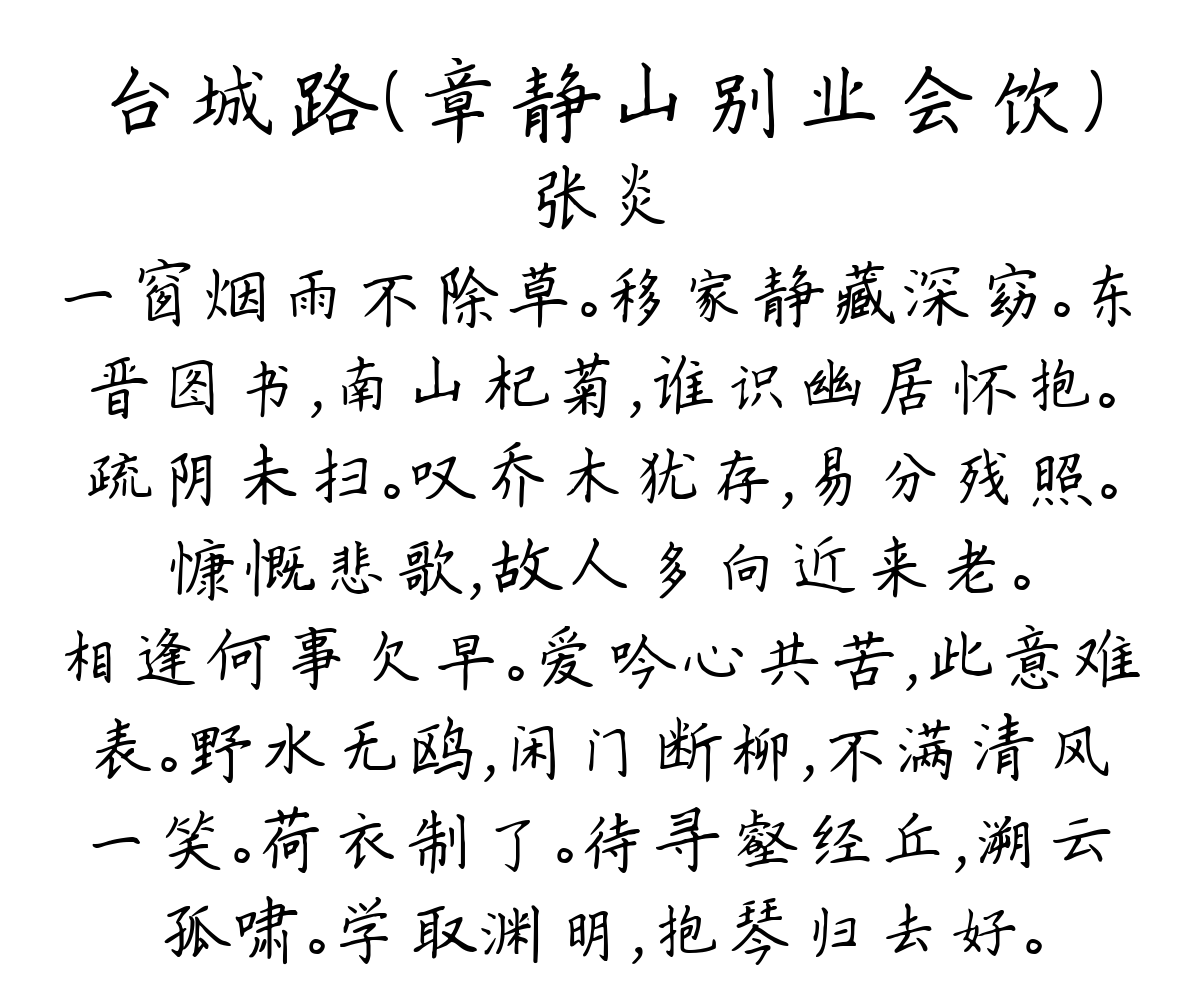 台城路(章静山别业会饮)
张炎
一窗烟雨不除草。移家静藏深窈。东
晋图书,南山杞菊,谁识幽居怀抱。
疏阴未扫。叹乔木犹存,易分残照。
慷慨悲歌,故人多向近来老。
相逢何事欠早。爱吟心共苦,此意难
表。野水无鸥,闲门断柳,不满清风
一笑。荷衣制了。待寻壑经丘,溯云
孤啸。学取渊明,抱琴归去好。